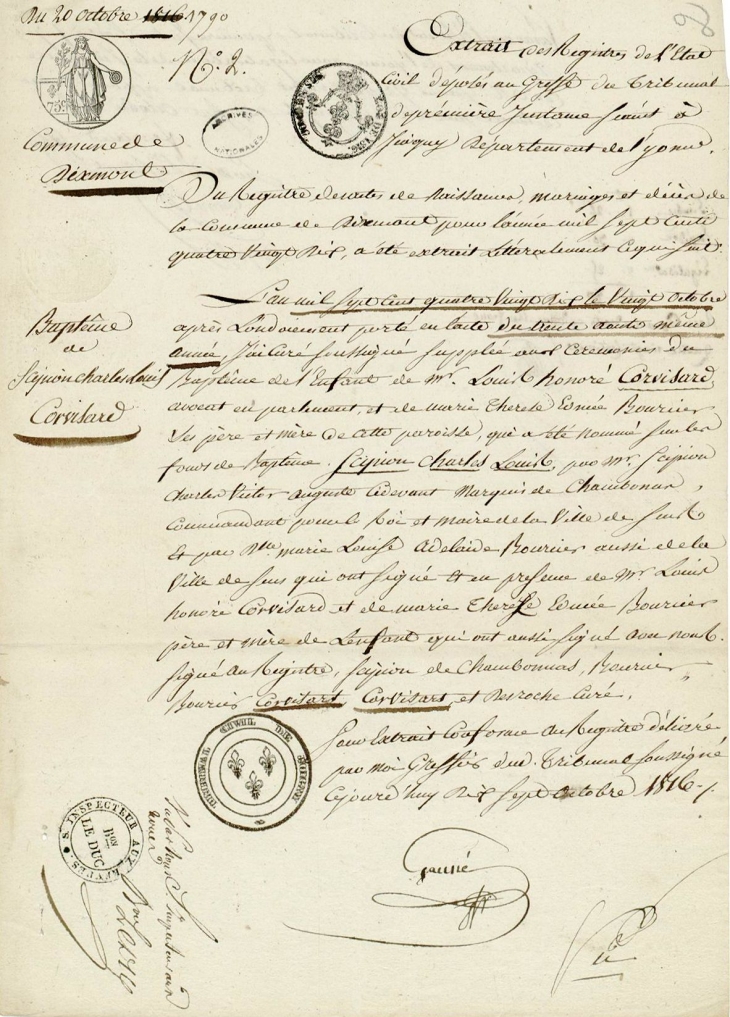 Du 20 octobre 1816 1790
N.° 2.
75c
ARCHIVES NATIONALES
Commune de
Dixmont
Extrait des Registres de l'Etat
civil déposés au Greffe du Tribunal
de première Instance séant à
Joigny Département de l'yonne.
Du Registre des actes de Naissances, mariages et décès de
la Commune de Dixmont pour l'année mil sept cent
quatre vingt Dix, a été extrait littéralement ce qui suit.
Baptême
de
Scipion Charles Louis
Corvisard
L'an mil sept cent quatre vingt Dix le vingt octobre
après l'ondoiement porté en l'acte du trente août même
année, J'ai Curé soussigné supplée aux Cérémonies du
Baptême de l'Enfant de mr. Louis honoré Corvisard,
avocat en parlement, et de marie Therese Edmée Bourier
Ses père et mère de cette paroisse, qui a été nommé sur les
fonds de Baptême Scipion Charles Louis, par mr. Scipion
Charles Victor auguste cidevant Marquis de Chambonas,
Commandant pour le Roi et maire de la Ville de Sens
Et par Dlle marie Louise Adelaide Bourier aussi de la
Ville de Sens qui ont signé Et en presence de Mr. Louis
honoré Corvisard et de marie Therese Edmée Bourier
père et mère de L'enfant qui ont aussi signé avec nous.
Signé au Registre, Scipion de Chambonnas, Bourier
Bourier Corvisart, Corvisart, et Desroche Curé.
Pour Extrait Conforme au Registre délivré
par moi Greffier dud. Tribunal soussigné
Cejourd'huy Dix Sept octobre 1816
TRIBUNAL CIVIL DE JOIGNY
S. INSPECTEUR AUX REVUES.
Bon
LE DUC